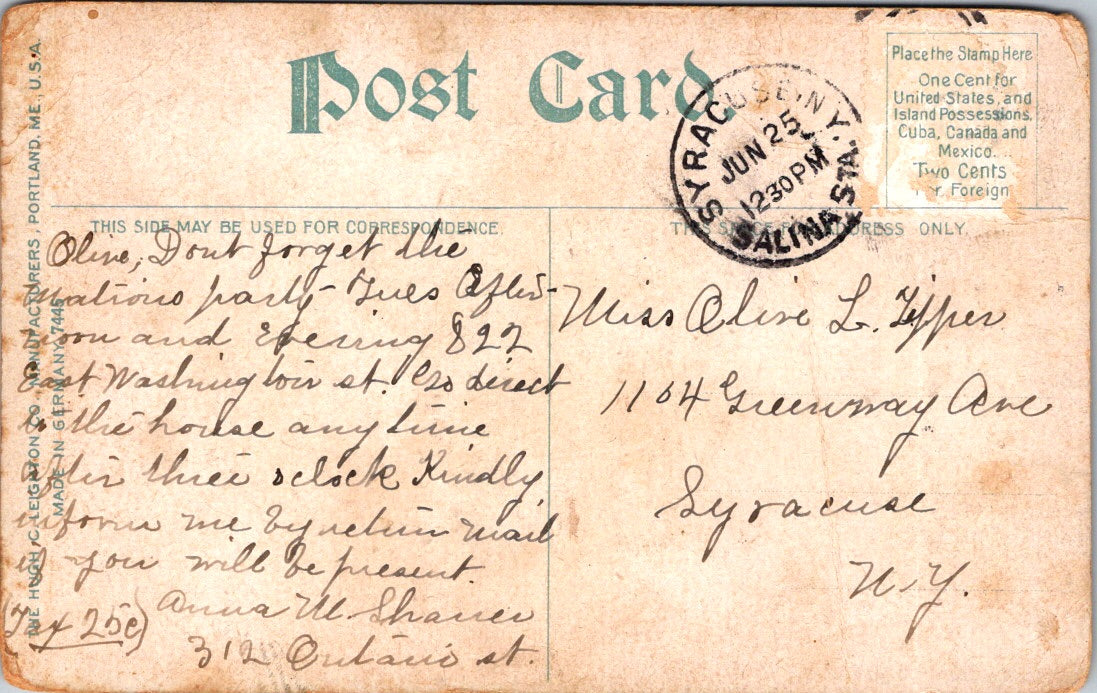 Post Card
SYRACUSE, N.Y.
JUN 25
1230 PM
SALINA STA.
Place the Stamp Here
One Cent for
United States, and
Island Possessions,
Cuba, Canada and
Mexico.
Two Cents
Foreign
THIS SIDE MAY BE USED FOR CORRESPONDENCE.
THIS ADDRESS ONLY.
THE HUGH C. LEIGHTON CO., MANUFACTURERS, PORTLAND, ME., U.S.A.
MADE IN GERMANY
Olive, Dont forget the
party - Tues After-
noon and Evening 822
East Washington st. Go direct
to the house any time
after three oclock Kindly
inform me by return mail
if you will be present.
Anna M Shaner
(Tax 25c)
312 Ontario st.
Miss Olive L. Tipper
1104 Greenway Ave
Syracuse
N.Y.